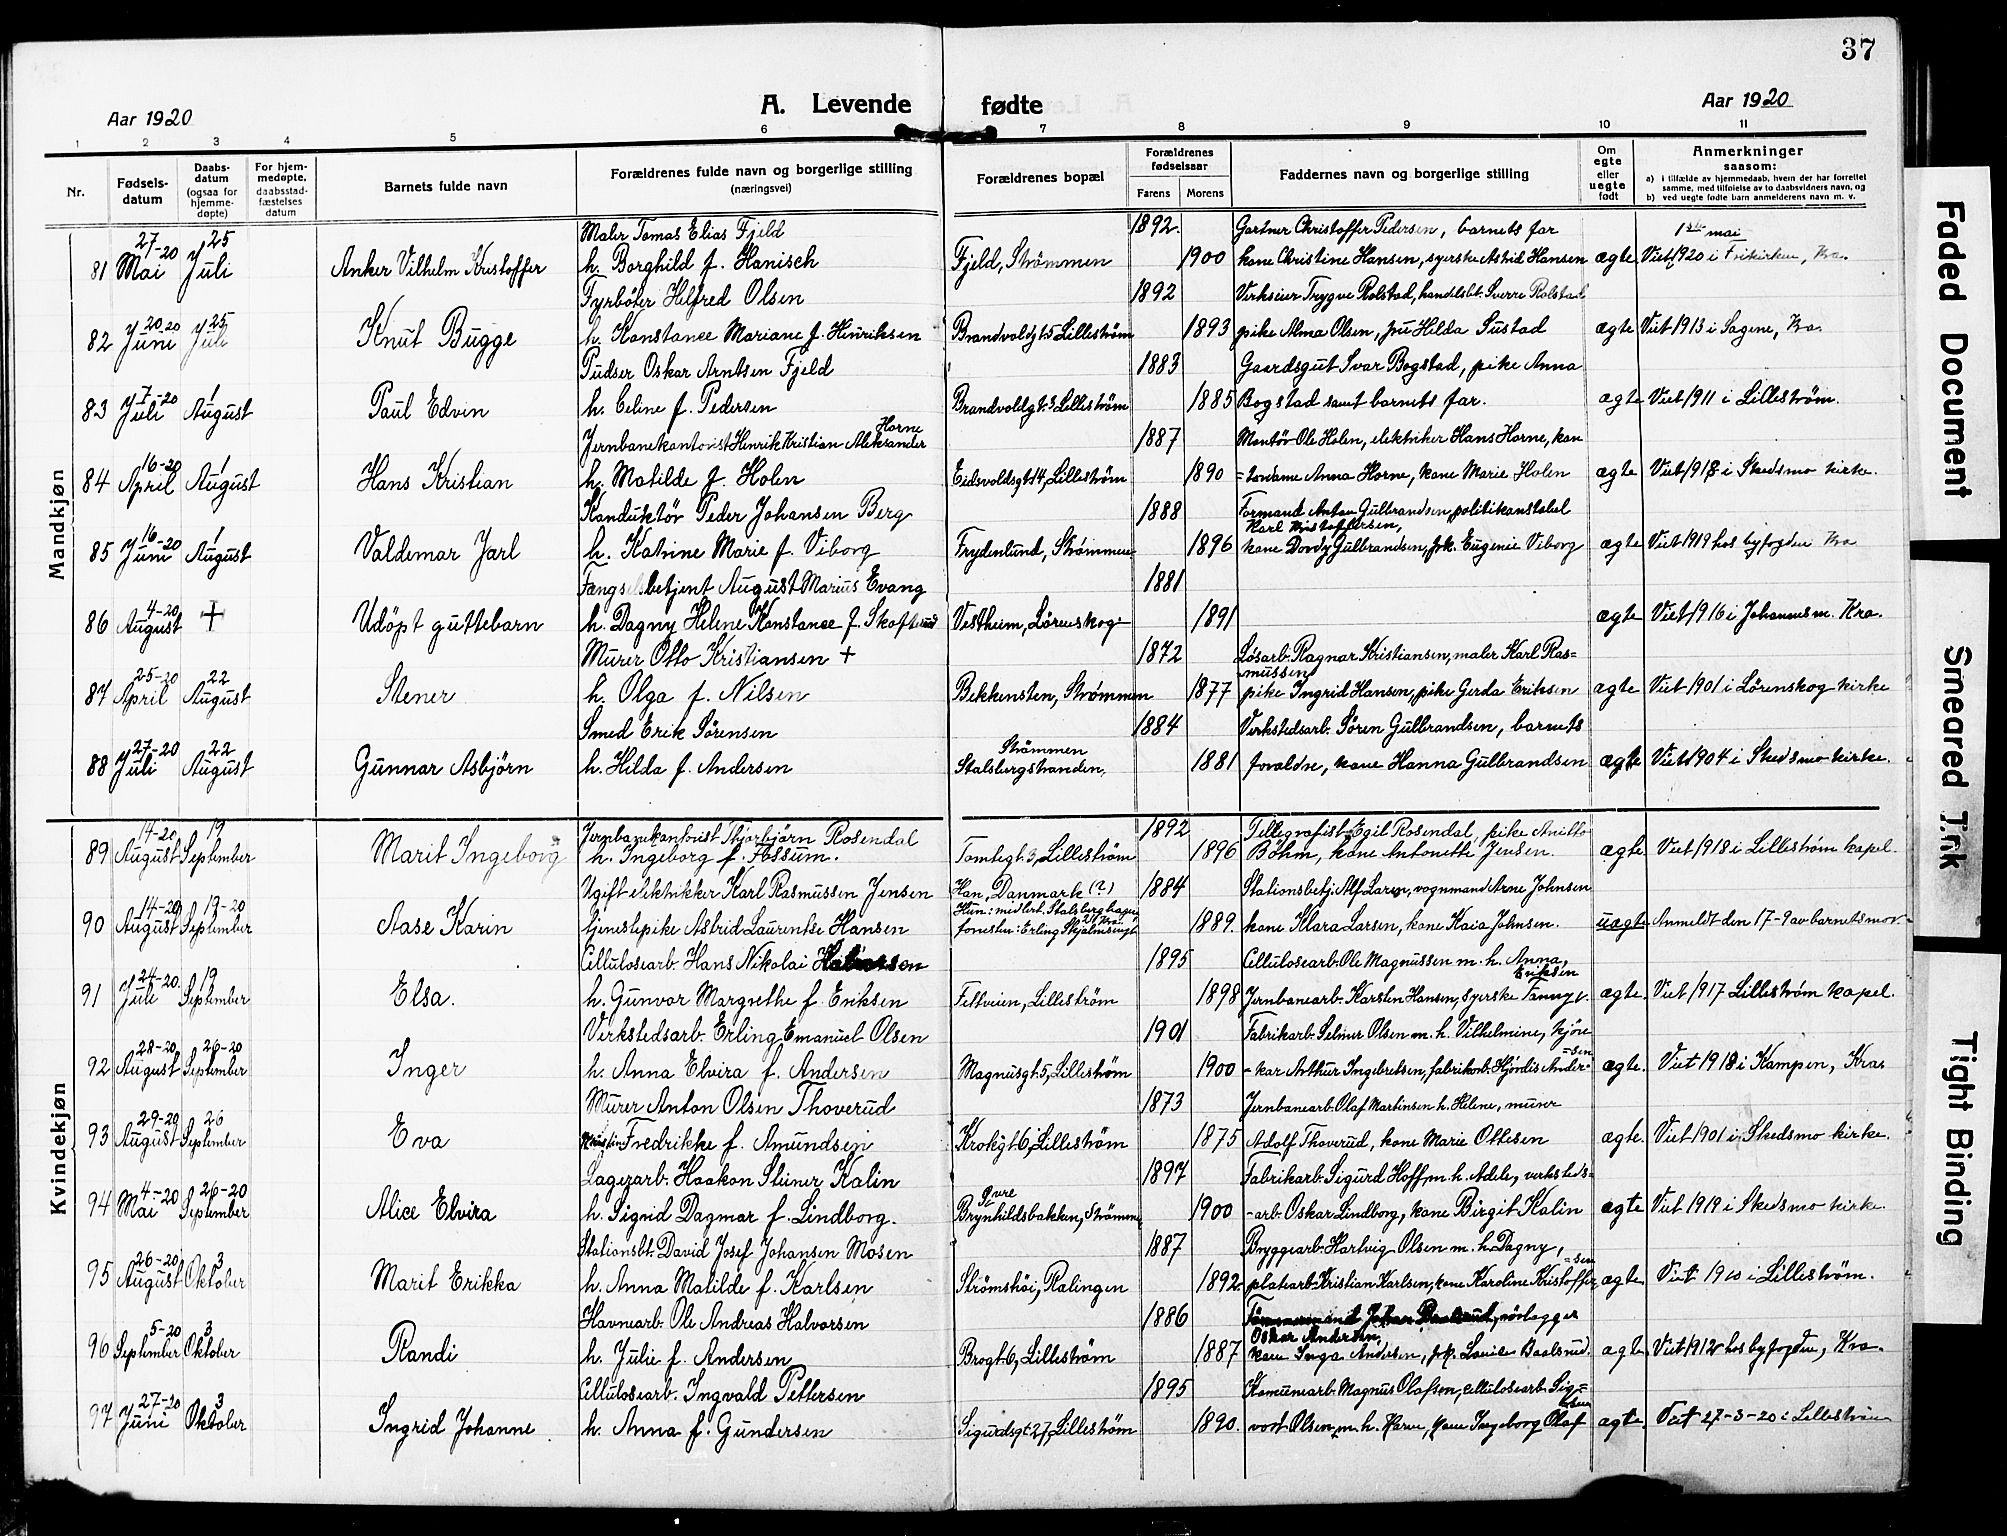 37
Aar 1920
A. Levende fødte
Aar 1920
1 2 3 4 5 6 7 8 9 10 11
Nr.
Fødsels-
datum
Daabs-
datum
(ogsaa for
hjemme-
døpte)
For hjem-
medøpte.
daabsstad-
fæstelses
datum
Barnets fulde navn
Forældrenes fulde navn og borgerlige stilling
(næringsvei)
Forældrenes bopæl
Forældrenes
fødselsaar
Farens Morens
Faddernes navn og borgerlige stilling
Om
egte
eller
uegte
født
Anmerkninger
saasom:
a) i tilfælde av hjemmedaab, hvem der har forrettet
samme, med tilføielse av to daabsvidners navn, og
b) ved uegte fødte barn anmelderens navn m. v.
Mandkjøn
27-20 25 Maler Tomas Elias Fjeld 1892. Gartner Christoffer Pedersen, barnets far 1ste mai
81 Mai Juli Anker Vilhelm Kristoffer h. Borghild f. Hanisch Fjeld, Strømmen 1900 kone Christine Hansen, syerske Astrid Hansen ægte Viet 1920 i Frikirken, Kra.
20-20 25 Fyrbøter Helfred Olsen 1892 Verkseier Trygve Rolstad, handelsbt. Sverre Rolstad
82 Juni Juli Knut Bugge h. Konstance Mariane f. Henriksen Brandvoldgt. 5 Lillestrøm 1893 pike Alma Olsen, fru Hilda Sustad ægte Viet 1913 i Sagene, Kra.
7-20 1 Pudser Oskar Arntsen Fjeld 1883 Gaardsgut Ivar Bogstad, pike Anna
83 Juli August Paul Edvin h. Celine f. Pedersen Brandvoldgt. 3 Lillestrøm 1885 Bogstad samt barnets far. ægte Viet 1911 i Lillestrøm.
16-20 1 Jernbanekontorist Henrik Kristian Aleksander Horne 1887 Montør Ole Holen, elektriker Hans Horne, kon
84 April August Hans Kristian h. Matilde f. Holen Eidsvoldsgt 14, Lillestrøm 1890 =tordame Anna Horne, kone Marie Holen ægte Viet 1918 i Skedsmo kirke.
16-20 1 Konduktør Peder Johansen Berg 1888 Formand Anton Gulbrandsen, politikonstabel
Karl Kristoffersen,
85 Juni August Valdemar Jarl h. Katrine Marie f. Viborg Frydenlund, Strømmen 1896 kone Dordy Gulbrandsen, frk. Eugenie Viborg ægte Viet 1919 hos byfogden Kra
4-20 Fængselsbetjent August Marius Evang 1881
86 August + Udöpt guttebarn h. Dagny Helene Konstance f. Skofterud Vestheim, Lørenskog 1891 ægte Viet 1916 i Johannes m. Kra.
25-20 22 Murer Otto Kristiansen + 1872 Løsarb. Ragnar Kristiansen, maler Karl Ras=
mussen,
87 April August Stener h. Olga f. Nilsen Bekkensten, Strømmen 1877 pike Ingrid Hansen, pike Gerda Eriksen ægte Viet 1901 i Lörenskog kirke
27-20 22 Smed Erik Sørensen 1884 Verkstedsarb. Søren Gulbrandsen, barnets
Strømmen
88 Juli August Gunnar Asbjørn h. Hilda f. Andersen Stalsbergstranden, 1881 foraldre, kone Hanna Gulbrandsen ægte Viet 1904 i Skedsmo kirke.
Kvindekjøn
14-20 19 Jernbanekontorist Thjorbjörn Rosendal 1892 Tellegrafist Egil Rosendal, pike
89 August September Marit Ingeborg h. Ingeborg f. Fossum. Tomtegt. 3, Lillestrøm 1896 Bøhm, kone Antonette Jensen. ægte Viet 1918 i Lillestrøm kapel.
14-20 19-20 Ugift elektrikker Karl Rasmussen Jensen Han, Danmark (?) 1884 Stationsbetj. Alf Larsen, vognmand Arne Johnsen
90 August September Aase Karin tjenestepike Astrid Laurentse Hansen Hun: midlert. Stalsberghagen 1889. kone Klara Larsen, kone Kaia Johnsen. uægte Anmeldt den 17-9 av barnets mor.
24-20. 19 Cellulosearb. Hans Nikolai 1895 Cellulosearb. Ole Magnussen m. h. Anna,
Eriksen
91 Juli September Elsa. h. Gunvor Margrethe f. Eriksen Feltveien, Lillestrøm 1898 Jernbanearb. Karsten Hansen, syerske Fanny ægte. Viet 1917 Lillestrøm kapel.
28-20 26-20 Verkstedsarb. Erling Emanuel Olsen 1901 Fabrikarb. Selmer Olsen m. h. Vilhelmine, kjøre
=sen
92 August September Inger h. Anna Elvira f. Andersen Magnusgt. 5, Lillestrøm 1900 -kar Arthur Ingebretsen, fabrikarb. Hjördis Ander- ægte. Viet 1918 i Kampen, Kra.
29-20 26 Murer Anton Olsen Thoverud 1873 Jernbanearb. Olaf Martinsen h. Helene, murer
93 August September Eva Fredrikke f. Amundsen Krokgt. 6, Lillestrøm 1875 Adolf Thoverud, kone Marie Ottesen ægte. Viet 1901 i Skedsmo kirke.
4-20 26-20 Lagerarb. Haakon Steiner Kalin 1897 Fabrikarb. Sigurd Hoff m. h. Adele, verksteds=
Øvre
94 Mai September Alice Elvira h. Signd Dagmar f. Lindborg. Brynhildsbakken, Strømmen 1900 -arb. Oskar Lindborg, kone Birgit Kalin ægte Viet 1919 i Skedsmo kirke.
26-20 3 Stationsbt. David Josef Johansen Mosen 1887 Bryggearb. Hartvig Olsen m. h. Dagny,
=sen
95 August Oktober Marit Erikka h. Anna Matilde f. Karlsen Strømshøi, Rælingen 1892. platearb. Kristian Karlsen, kone Karoline Kristoffer ægte Viet 1910 i Lillestrøm.
5-20 3 Havnearb. Ole Andreas Halvorsen 1886 rörlægger
Oskar Andersen,
96 September Oktober Randi h. Julie f. Andersen Brogt 6, Lillestrøm 1887 kone Inga Andersen, frk. Louise Baalsrud. ægte. Viet 1912 hos byfogden, Kra.
27-20 3 Cellulosearb. Ingvald Pettersen 1895 Komunearb. Magnus Olafsen, cellulosearb. Sig=
97 Juni Oktober Ingrid Johanne h. Anna f. Gundersen Sigurdsgt. 27, Lillestrøm 1890. vort Olsen, m. h. Karen, kone Ingeborg Olaf ægte. Viet 27-3-20 i Lillestrøm
Faded Document
Smeared Ink
Tight Binding